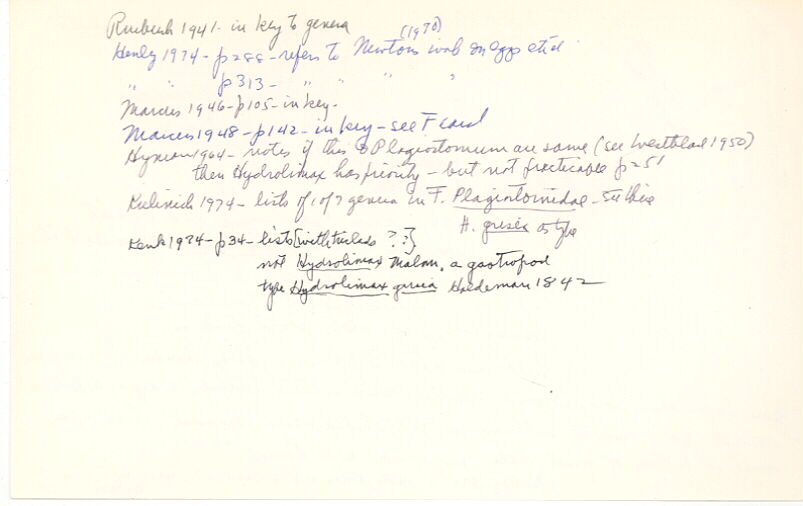 Ruebush 1941 - in key to genera
Henley 1974 - p288 - refers to Newtons work on eggs etc. (1970)
" " p313 - " " " "
Marcus 1946 - p105 - in key -
Marcus 1948 - p142 - in key - see F card
Hyman 1964 - notes if this & Plagiostomum are same (see Westblad 1950)
then Hydrolimax has priority - but not practicable p251
Kulinich 1974 - lists 1 of 7 genera in F. Plagiostomidae - see this
H. grisea as type
Kenk 1974 - p34 - lists [with triclads ??]
not Hydrolimax Malm, a gastropod
type Hydrolimax grisea Haldeman 1842